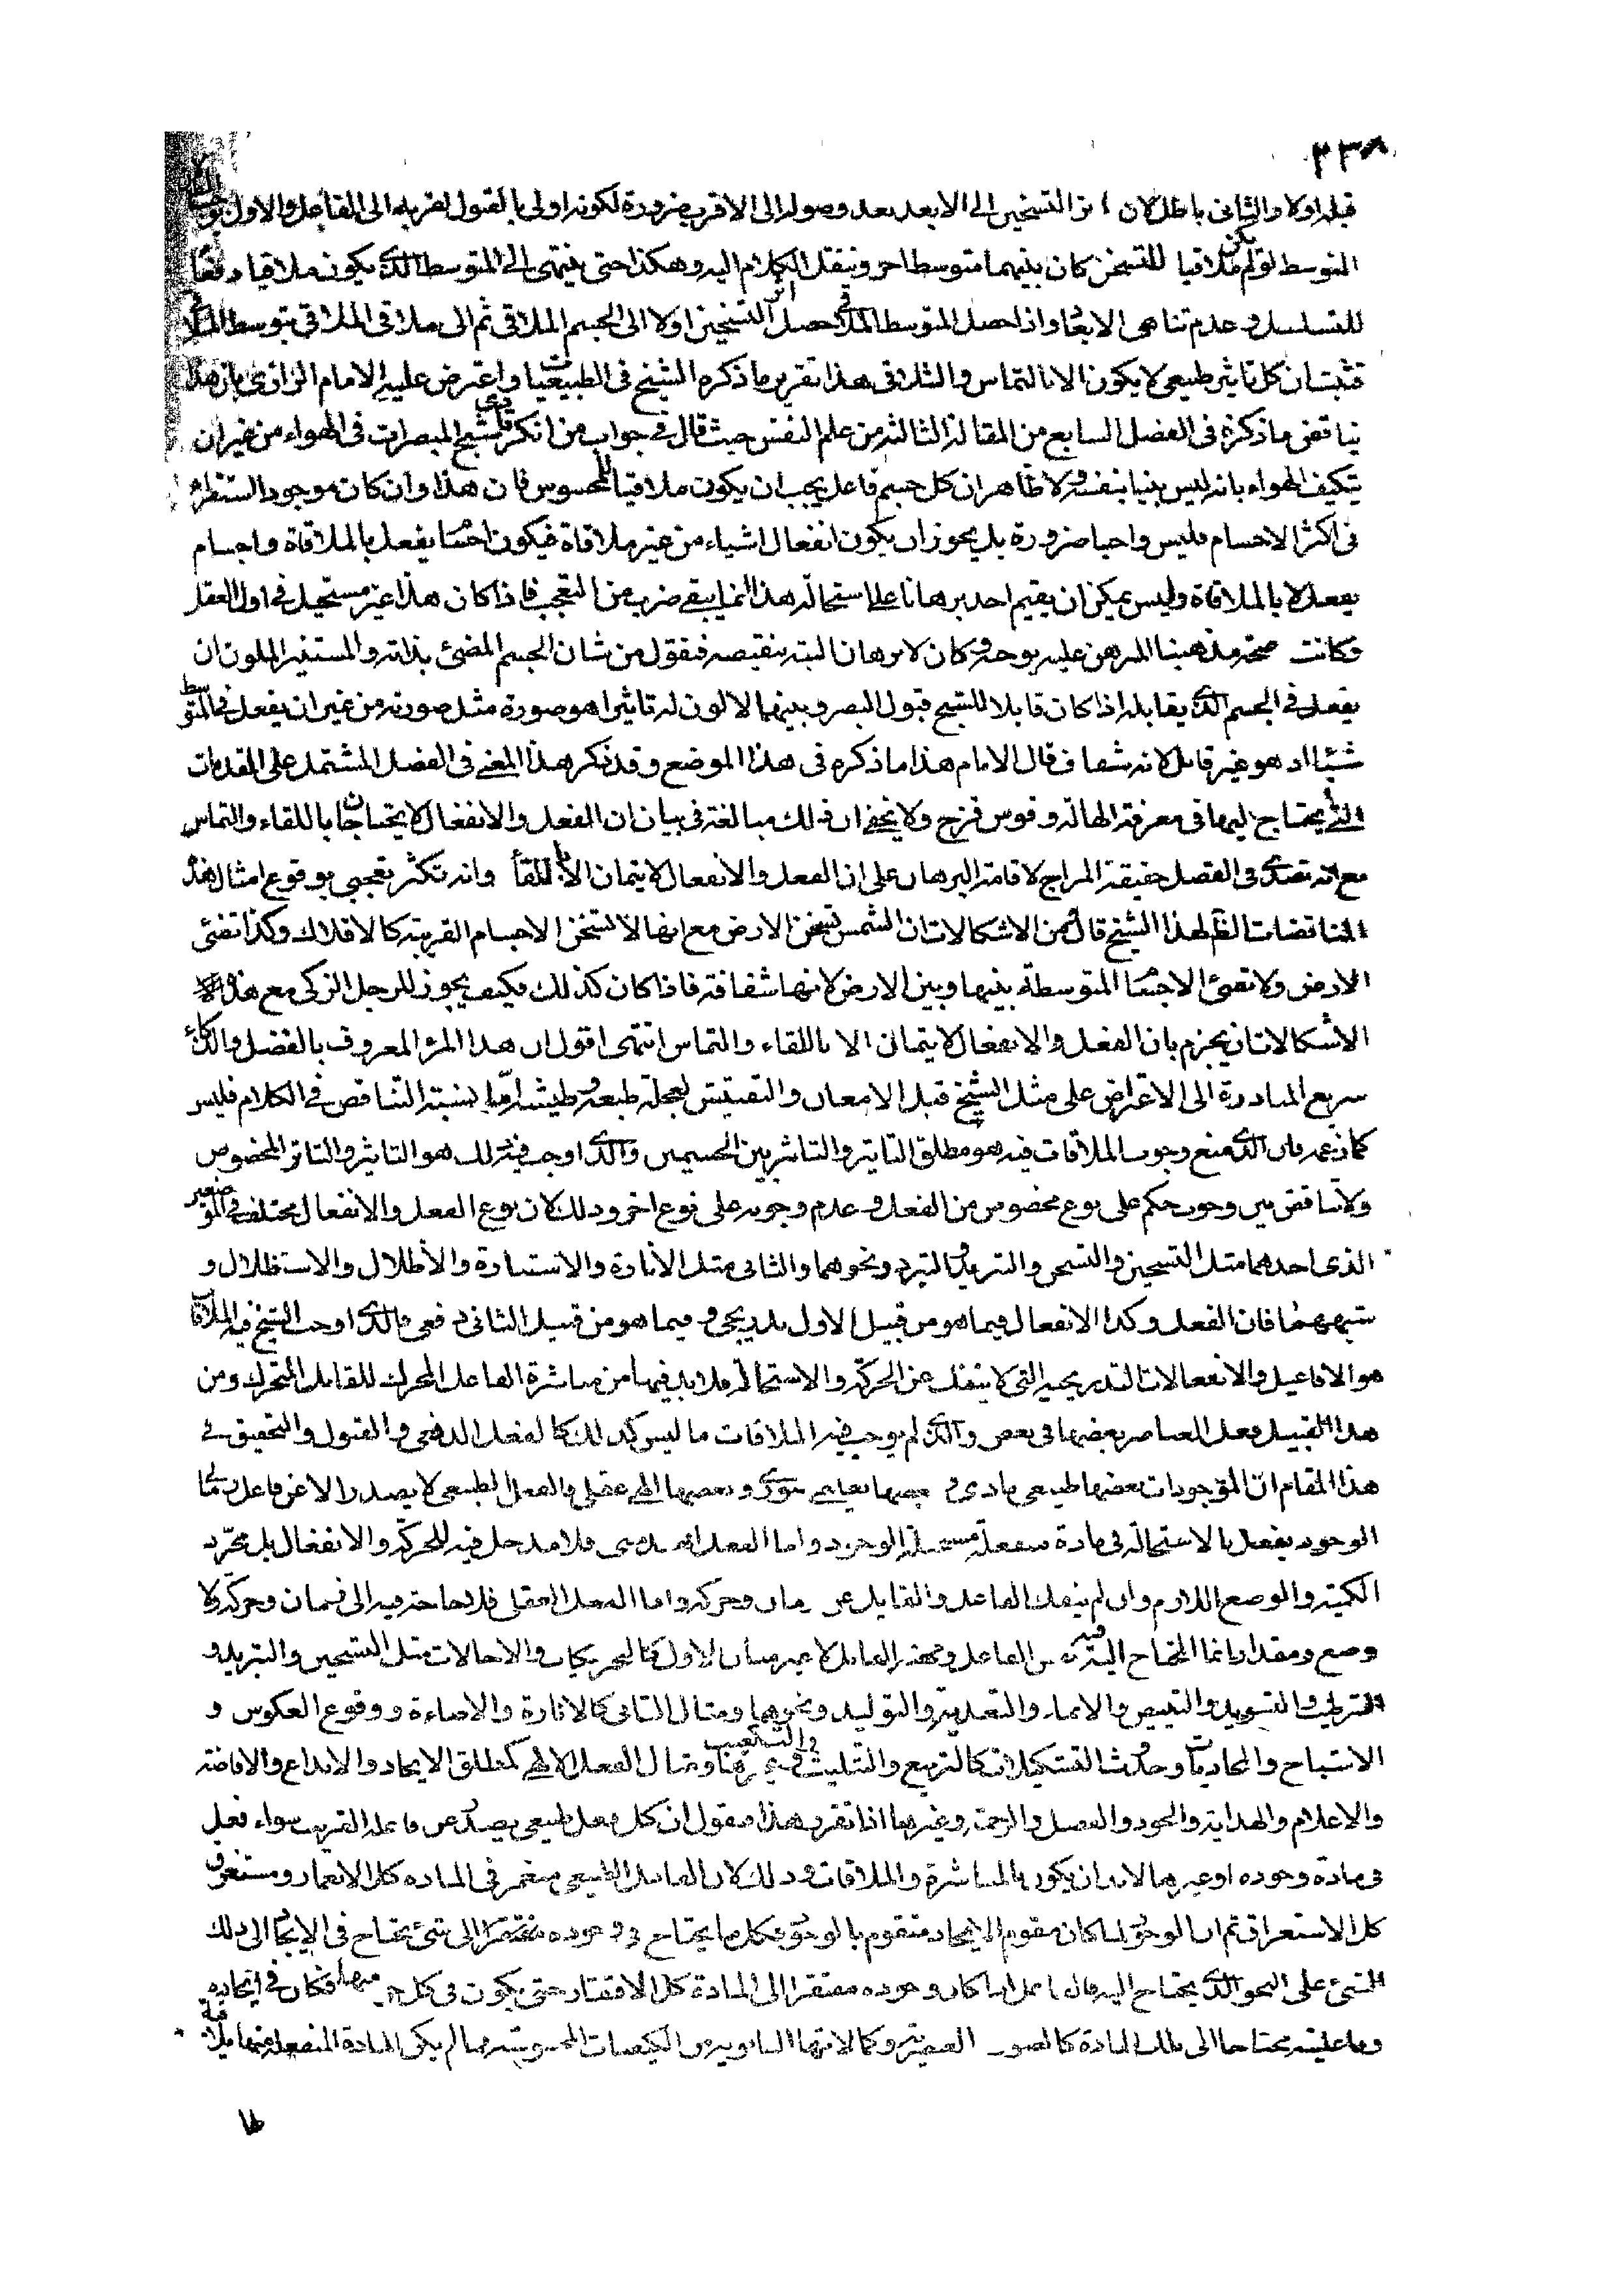 ٢٣٨
قبله اولا والثانى باطل لان اثر التسخين الى الابعد بعد وصوله الى الاقرب ضرورة لكونه اولى بالقبول لقربه الى الفاعل والاول يوجب
المتوسط لو لم يكن ملاقيا للتسخن كان بينهما متوسط اخر وننقل الكلام اليه وهكذا حتى ينتهى الى المتوسط الذى يكون ملاقيا دفعا
للتسلسل وعدم تناهى الابعاد واذا حصل المتوسط الملاقى حصل اثر التسخين اولا الى الجسم الملاقى ثم الى ملاقى الملاقى بتوسط الملاقى
فثبت ان كل تاثير طبيعى لا يكون الا بالتماس والتلاقى هذا تقرير ما ذكره الشيخ فى الطبيعيات واعترض عليه الامام الرازى بان هذا
يناقض ما ذكره فى الفصل السابع من المقالة الثالثة من علم النفس حيث قال فى جواب من انكر تادى شبح المبصرات فى الهواء من غير ان
يتكيف الهواء بانه ليس بينا بنفسه ولا ظاهر ان كل جسم فاعل يجب ان يكون ملاقيا للمحسوس فان هذا وان كان موجودا استقراء
فى اكثر الاجسام فليس واجبا ضرورة بل يجوز ان يكون انفعال اشياء من غير ملاقاة فيكون اجسام يفعل بالملاقاة واجسام
يفعل لا بالملاقاة وليس يمكن ان يقيم احد برهانا على استحالة هذا انما يبقى ضرب من التعجب فاذا كان هذا غير مستحيل فى اول العقل
وكانت صحة مذهبنا المبرهن عليه يوجبه وكان لا برهان البتة ينقيضه فنقول من شان الجسم المضئ بذاته والمستنير الملون ان
يفعل فى الجسم الذى يقابله اذا كان قابلا للشبح قبول البصر وبينهما لا لون له تاثيرا هو صورة مثل صورته من غير ان يفعل فى المتوسط
شيئا اذ هو غير قابل لانه شفاف قال الامام هذا ما ذكره فى هذا الموضع وقد ذكر هذا المعنى فى الفصل المشتمل على المقدمات
التى يحتاج اليها فى معرفة الهالة وقوس قزح ولا يخفى ان ذلك مبالغة فى بيان ان الفعل والانفعال لا يحتاجان باللقاء والتماس
مع انه تصدى فى الفصل حقيقة المزاج لاقامة البرهان على ان الفعل والانفعال لا يتمان الا باللقاء وانه تكثر تعجبى بوقوع امثال هذه
المناقضات الظ لهذا الشيخ قال ثم من الاشكالات ان الشمس تسخن الارض مع انها لا تسخن الاجسام القريبة كالافلاك وكذا تضئ
الارض ولا تضئ الاجسام المتوسطة بينها وبين الارض لانها شفافة فاذا كان كذلك فكيف يجوز للرجل الزكى مع هذه
الاشكالات ان يجزم بان الفعل والانفعال لا يتمان الا باللقاء والتماس انتهى اقول ان هذا المرؤ المعروف بالفضل والذكاء
سريع المبادرة الى الاعتراض على مثل الشيخ قبل الامعان والتفتيش لعجلة طبعه وطيشه اما نسبته التناقض فى الكلام فليس
كما زعمه فان الذى منع وجوب الملاقات فيه هو مطلق التاثير والتاثر بين الجسمين والذى اوجب فيه ذلك هو التاثير والتاثر المخصوص
ولا تناقض بين وجوب حكم على نوع مخصوص من الفعل وعدم وجوبه على نوع اخر وذلك لان نوع الفعل والانفعال مختلف فى الموضعين
الذى احدهما مثل التسخين والتسخن والتبريد والتبرد ونحوهما والثانى مثل الانارة والاستنارة والاظلال والاستظلال و
شبههما فان الفعل وكذا الانفعال فيما هو من قبيل الاول تدريجى وفيما هو من قبيل الثانى دفعى فالذى اوجب الشيخ فيه الملاقاة
هو الافاعيل والانفعالات التدريجية التى لا ينفك عن الحركة والاستحالة فلا بد فيها من مباشرة الفاعل المحرك للقابل المتحرك ومن
هذا القبيل فعل العناصر بعضها فى بعض والذى لم يوجب فيه الملاقات ما ليس كذلك كالفعل الدفعى والقبول والتحقيق فى
هذا المقام ان الموجودات بعضها طبيعى مادى و بعضها تعليمى و بعضها الهى عقلى والفعل الطبيعى لا يصدر الا عن فاعل
الوجود يفعل بالاستحالة فى مادة منفعلة الوجود واما الفعل فلا مدخل فيه للحركة والانفعال بل مجرد
الكمية والوضع اللازم وان لم ينفك الفاعل والقابل عن زمان وحركة واما الفعل العقلى فلا حاجة فيه الى زمان وحركة ولا
وضع ومقدار انما المحتاج اليه فيه الفاعل لا غير مثال الاول كالتحريكات والاحالات مثل التسخين والتبريد و
والتسويد والتبييض والانماء والتغذية والتوليد ونحوها ومثال الثانى كالانارة والاضاءة ووقوع العكوس و
الاشباح والمحاذيات وحدوث التشكيلات كالتربيع والتثليث والتكعيب وغيرها ومثال الفعل الالهى كمطلق الايجاد والابداع والافاضة
والاعلام والهداية والجود والفضل والرحمة وغيرها اذا تقرر هذا فنقول ان كل فعل طبيعى يصدر عن فاعله القريب سواء فعل
فى مادة وجوده او غيرها لا بد ان يكون بالمباشرة والملاقات وذلك لان الفاعل الطبيعى منغمر فى المادة كل الانغمار ومستغرق
كل الاستغراق ثم ان الوجود لما كان مقوم الايجاد متقوم بالوجود فكل ما يحتاج فى وجوده مفتقرا الى شئ يحتاج فى الايجاد الى ذلك
الشئ على النحو الذى يحتاج اليه كان وجوده مفتقرا الى المادة كل الافتقار حتى يكون فى كل منها فكان فى ايجاده
وفاعليته محتاجا الى تلك المادة كالصور وكمالاتها الثانوية والكيفيات المحسوسة فما لم يكن المادة المنفعلة